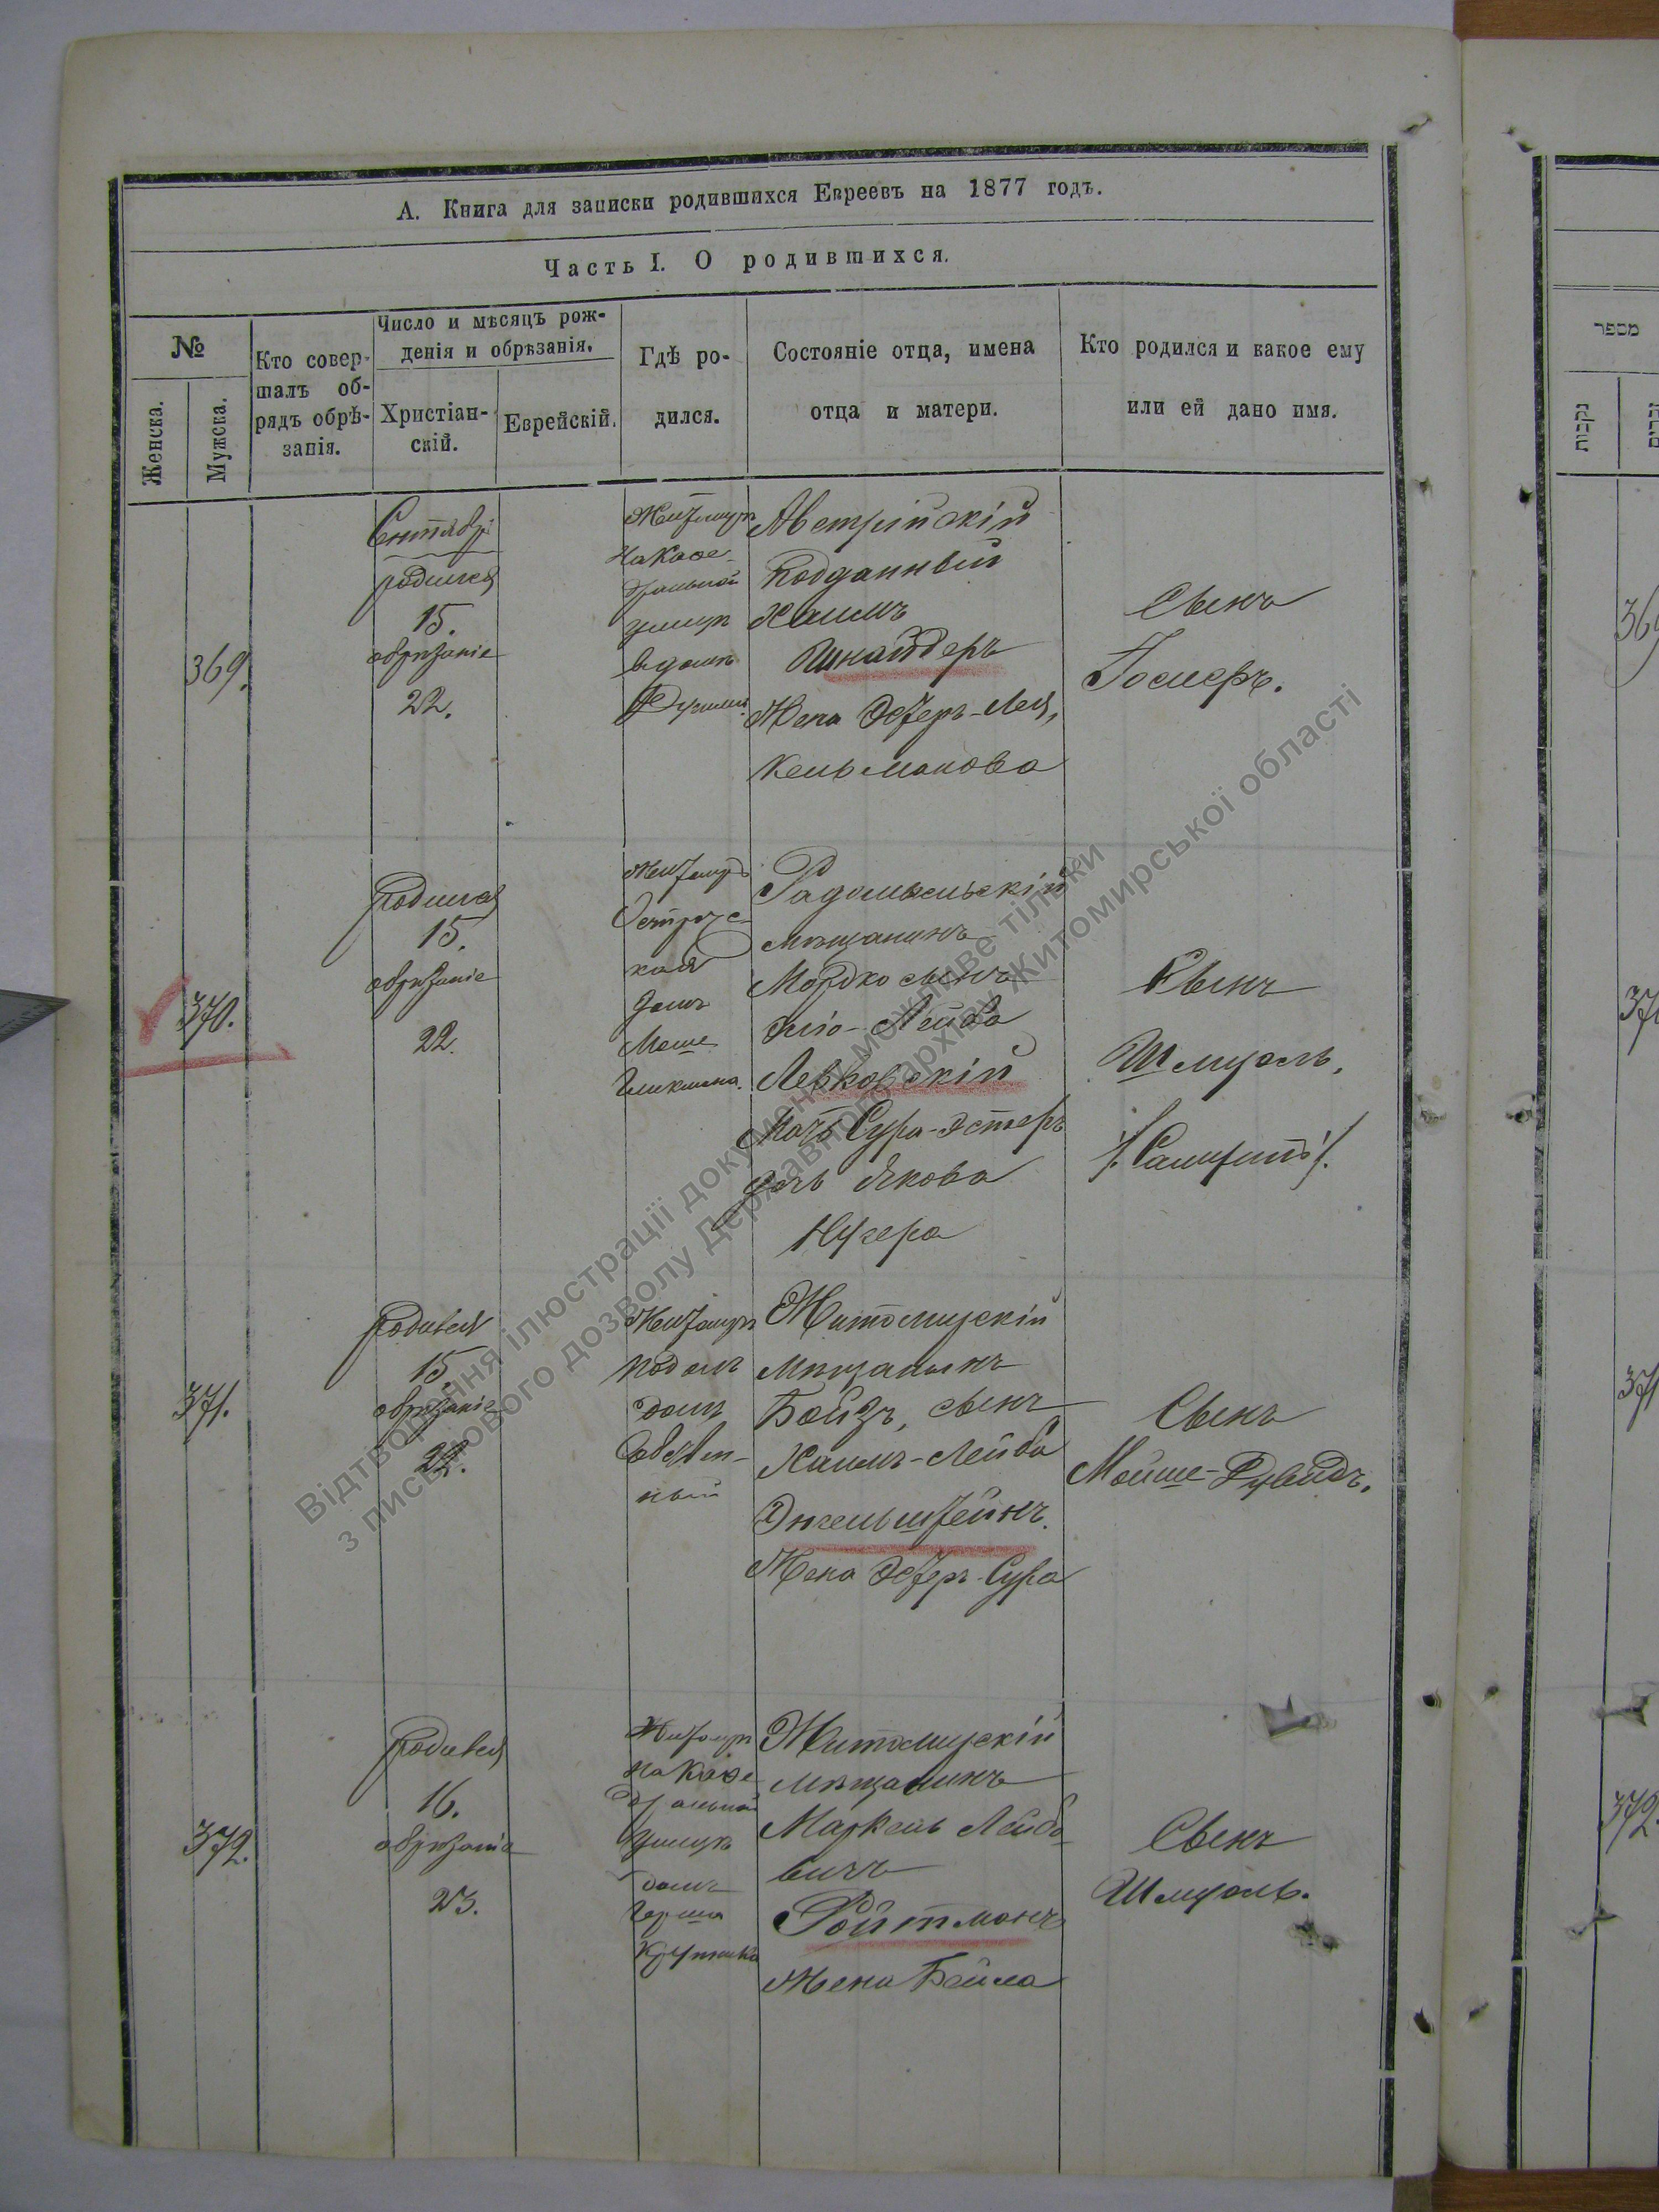 А. Книга для записки родившихся Евреевъ на 1877 годъ.
Часть I. О родившихся.
№
Женска.
Мужска.
Кто совер-
шалъ об-
рядъ обрѣ-
занія.
Число и мѣсяцъ рож-
денія и обрѣзанія.
Христіан-
скій.
Еврейскій.
Гдѣ ро-
дился.
Состояніе отца, имена
отца и матери.
Кто родился и какое ему
или ей дано имя.
369.
Сентябр:
родился
15.
обрѣзаніе
22.
Житомирѣ
На Кафе-
дральной
улицѣ
в домѣ
Австрійскій
Подданный
Хаимъ
Шнайдеръ
Жена Эстеръ-Лея,
Кельманова
Сынъ
Госиеръ.
370.
Родился
15.
обрѣзаніе
22.
Житомиръ
Острожс-
кая
домъ
Моше
Гликмана.
Радомысльскій
мѣщанинъ
Мордко сынъ
Лейба
Левковскій
Мать Сура-Эстеръ
дочь Якова
Нухера
Сынъ
Шмуель,
371.
Родился
15.
обрѣзаніе
22.
Житомирѣ
Подолъ
домъ
Собствен-
ный
Житомирскій
Мѣщанинъ
Бейзъ, сынъ
Хаимъ-Лейба
Энгельштейнъ.
Жена Эстеръ-Сура
Сынъ
Мойше-Дувидъ.
372.
Родился
16.
обрѣзаніе
23.
Житомирѣ
на Кафе
дральной
улицѣ
домъ
Герша
Житомирскій
мѣщанинъ
Маркель Лейбо-
вичъ
Ройтманъ
Жена Бейла
Сынъ
Шмуель.
מספר
נקבות
369
370
371
372.
Відтворення ілюстрації документу можливе тільки
з письмового дозволу Державного архіву Житомирської області